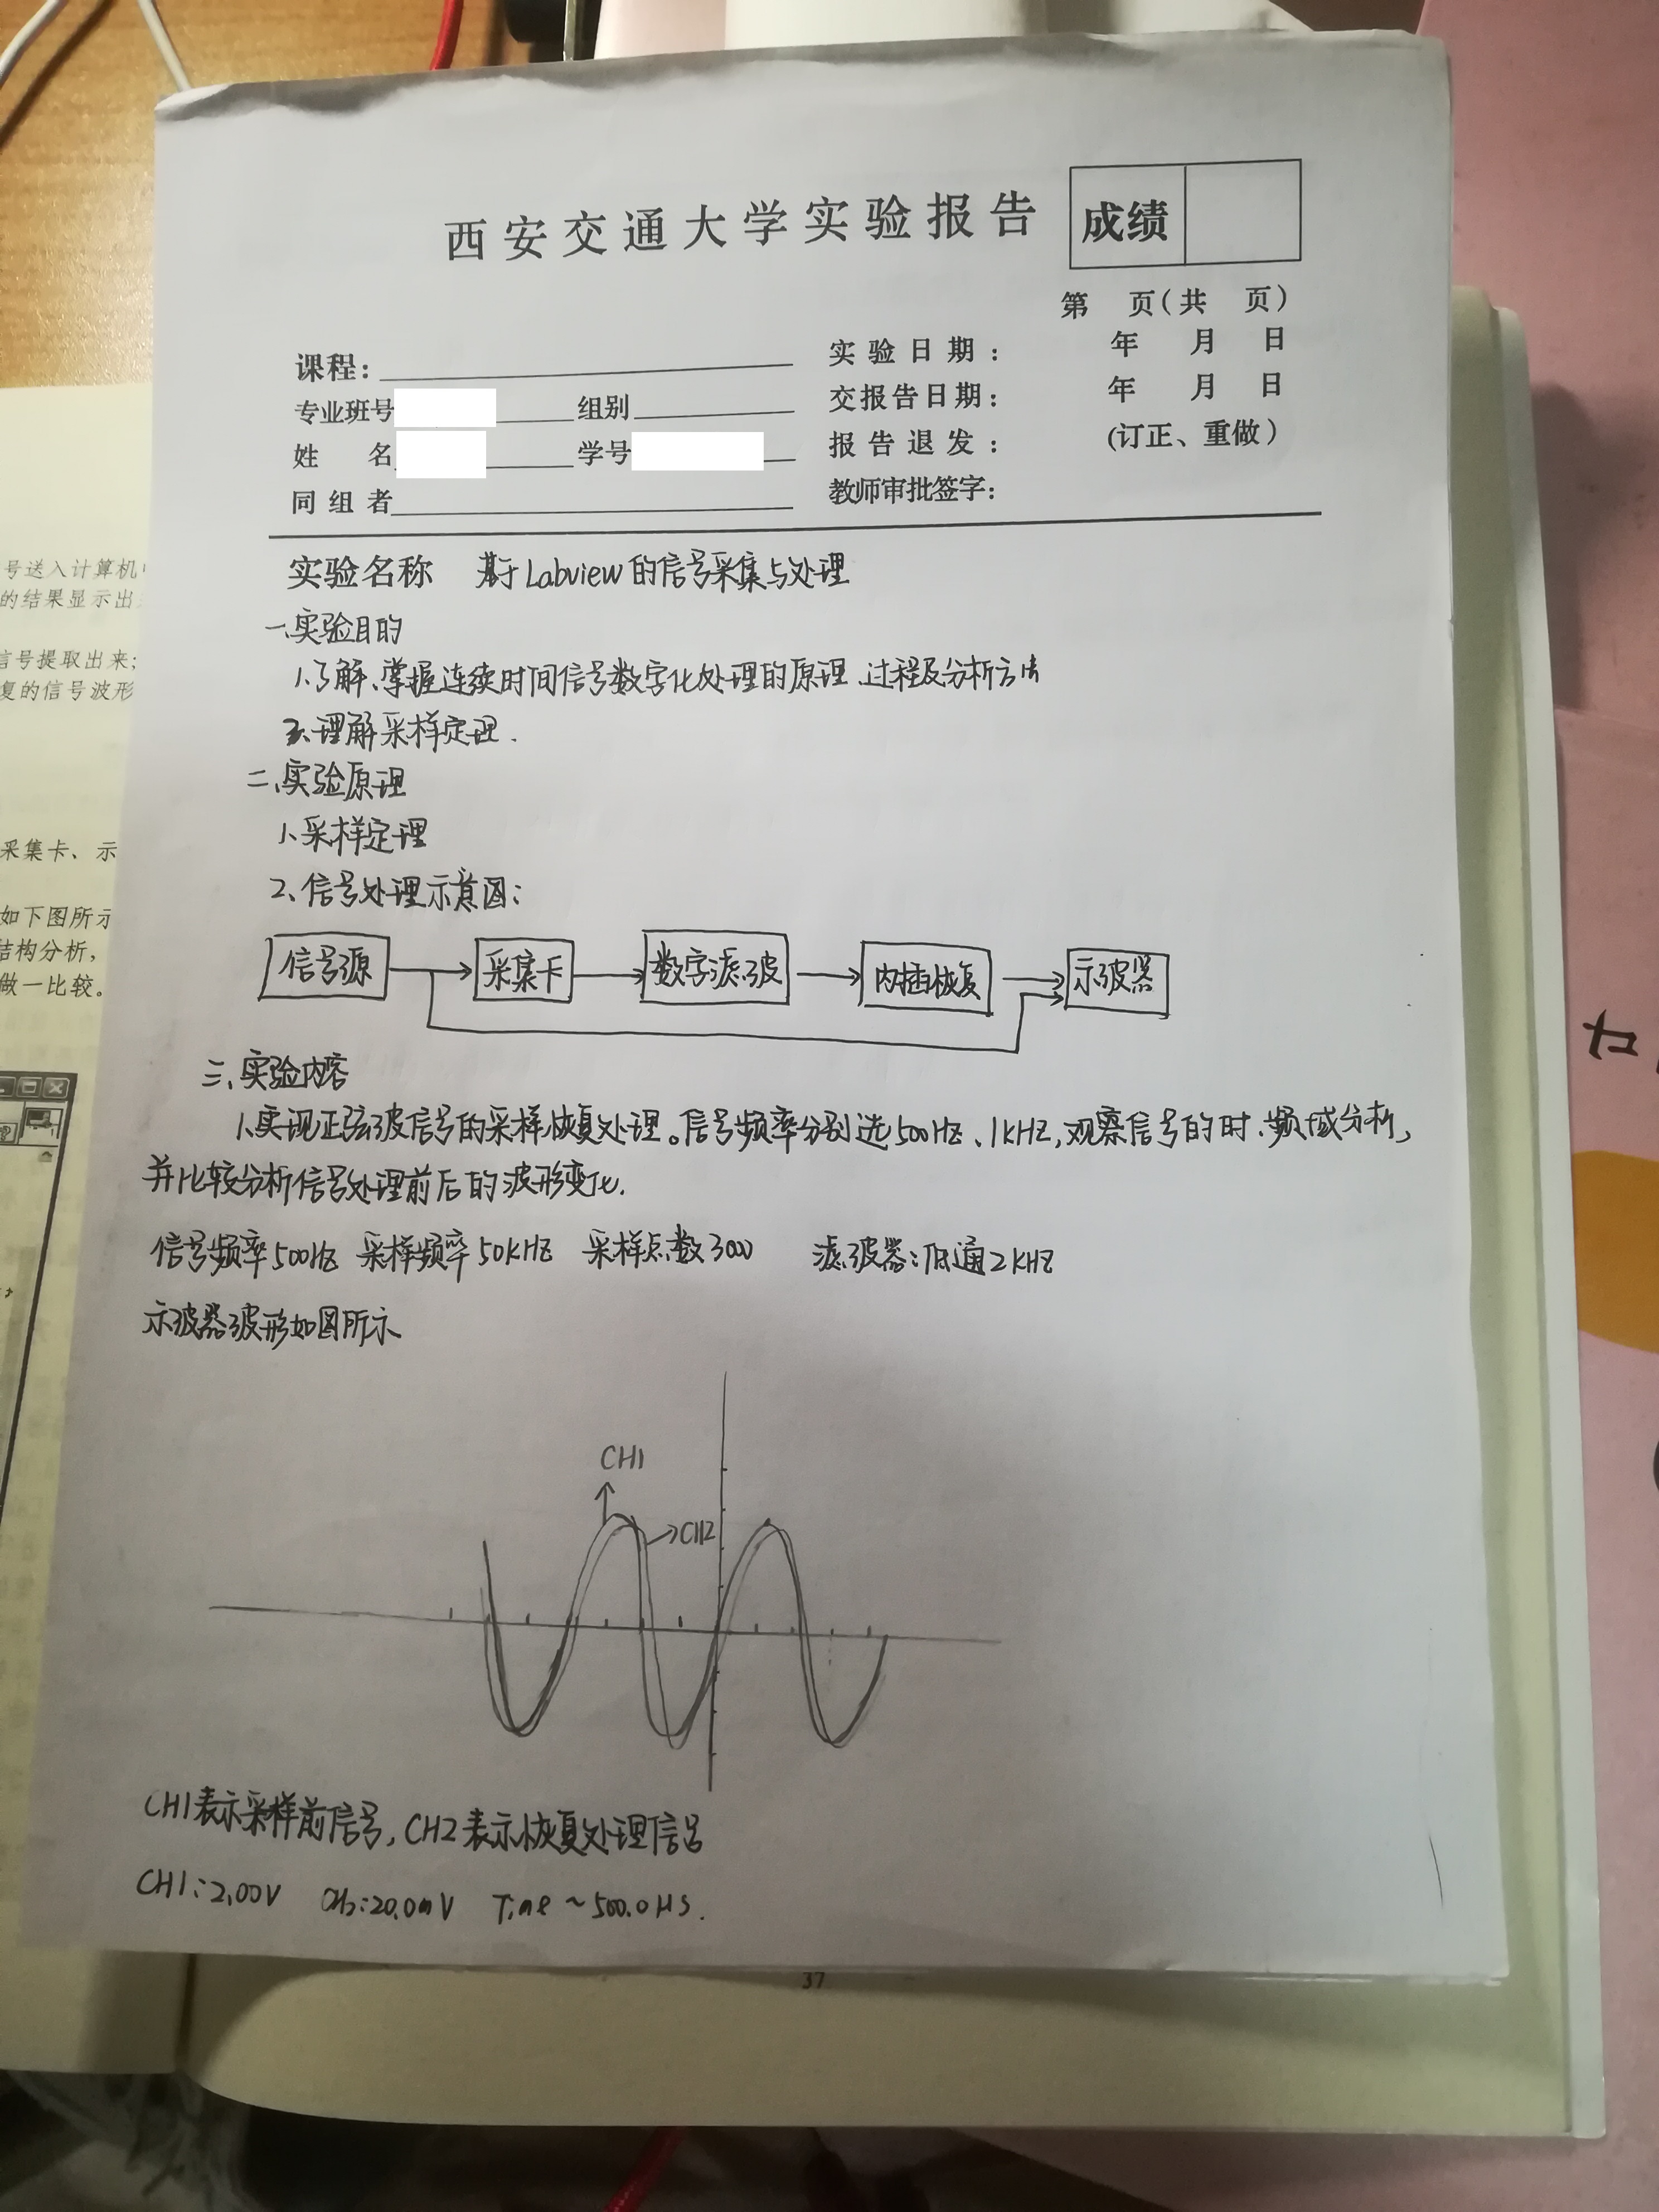 西安交通大学实验报告
成绩
第 页(共 页)
课程:
实验日期: 年 月 日
专业班号 组别
交报告日期: 年 月 日
姓 名 学号
报告退发: (订正、重做)
同组者
教师审批签字:
实验名称 基于Labview的信号采集与处理
一、实验目的
1、了解、掌握连续时间信号数字化处理的原理、过程及分析方法
2、理解采样定理.
二、实验原理
1、采样定理
2、信号处理示意图:
信号源 采集卡 数字滤波 内插恢复 示波器
三、实验内容
1、实现正弦波信号的采样恢复处理。信号频率分别选500Hz、1KHZ,观察信号的时、频域分析,
并比较分析信号处理前后的波形变化.
信号频率500Hz 采样频率50KHZ 采样点数3000 滤波器:低通2KHZ
示波器波形如图所示
CH1
CH2
CH1表示采样前信号,CH2表示恢复处理信号
CH1:2.00V CH2:20.0mV Time ~500.0μs.
37
号送入计算机
的结果显示出
信号提取出来;
复的信号波形
采集卡、示
如下图所示
结构分析,
做一比较。